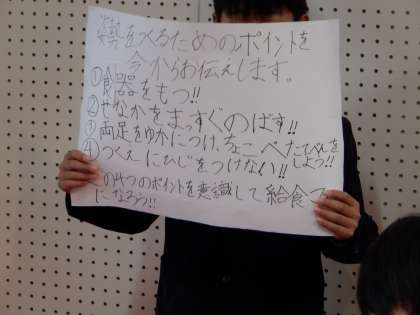 をつくるためのポイントを
今からお伝えします。
①食器をもつ!!
②せなかをまっすぐのばす!!
③両足をゆかにつけ、
④つくえにひじをつけない!! しよう!!
の4つのポイントを意識して給食
になろう!!